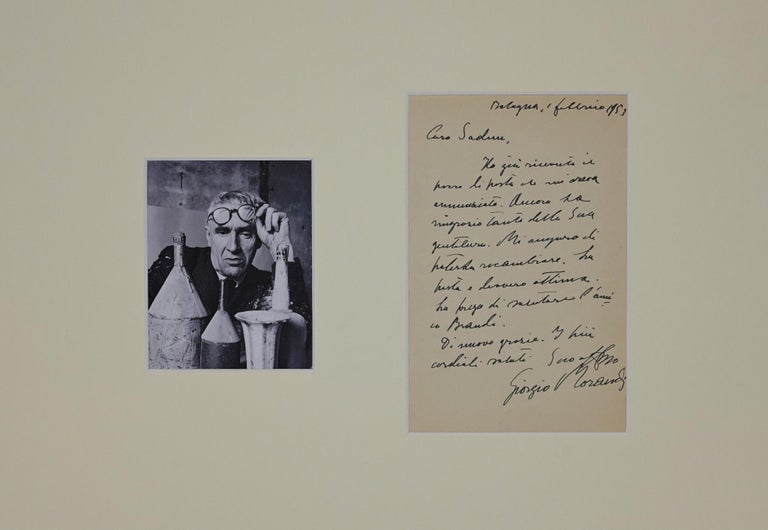 Bologna, 1 febbraio 1953
Caro Sadun,
Ho già ricevuto il
pacco di pasta che mi aveva
annunciato. Ancora La
ringrazio tanto della Sua
gentilezza. Mi auguro di
poterla ricambiare. La
pasta è davvero ottima.
La prego di salutare l'ami-
co Brandi.
Di nuovo grazie. I più
cordiali saluti Suo aff.mo
Giorgio Morandi